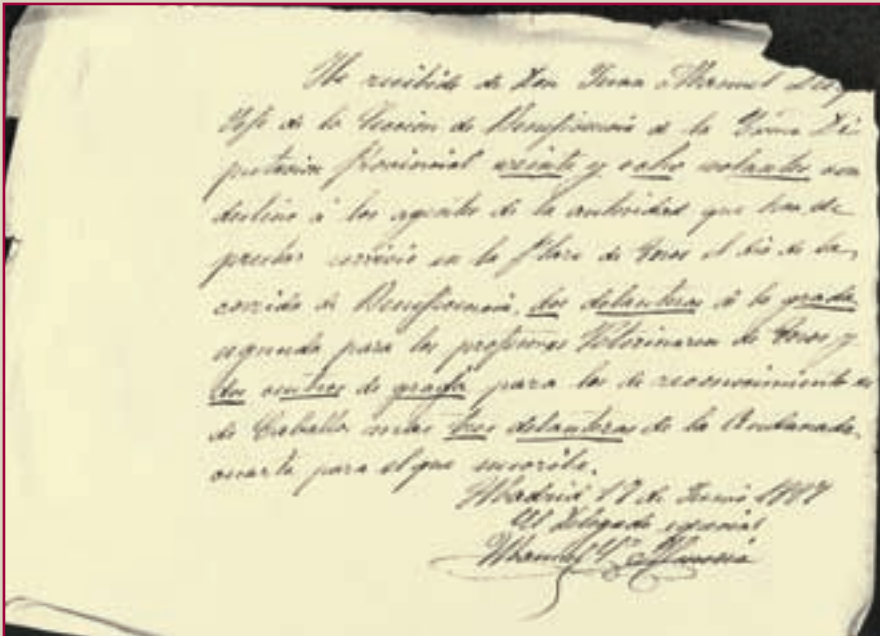 He recibido de Don Juan Manuel
Jefe de la Sección de Beneficencia de la Excma Di-
putación Provincial veinte y ocho volantes con
destino á los agentes de la autoridad que han de
prestar servicio en la Plaza de Toros el dia de la
corrida de Beneficencia, dos delanteras de la grada
segunda para los profesores Veterinarios de Toros y
dos centros de grada para los de reconocimiento
de Caballos mas tres delanteras de la Andanada
cuarta para el que suscribe.
Madrid 17 de Junio
El Delegado especial
Manuel